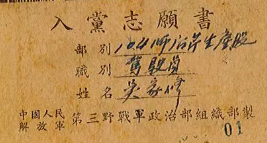 入黨志願書
部別 104师治洋生產股
職別 駕駛員
姓名 吴家修
中國人民解放軍 第三野戰軍政治部組織部製
01